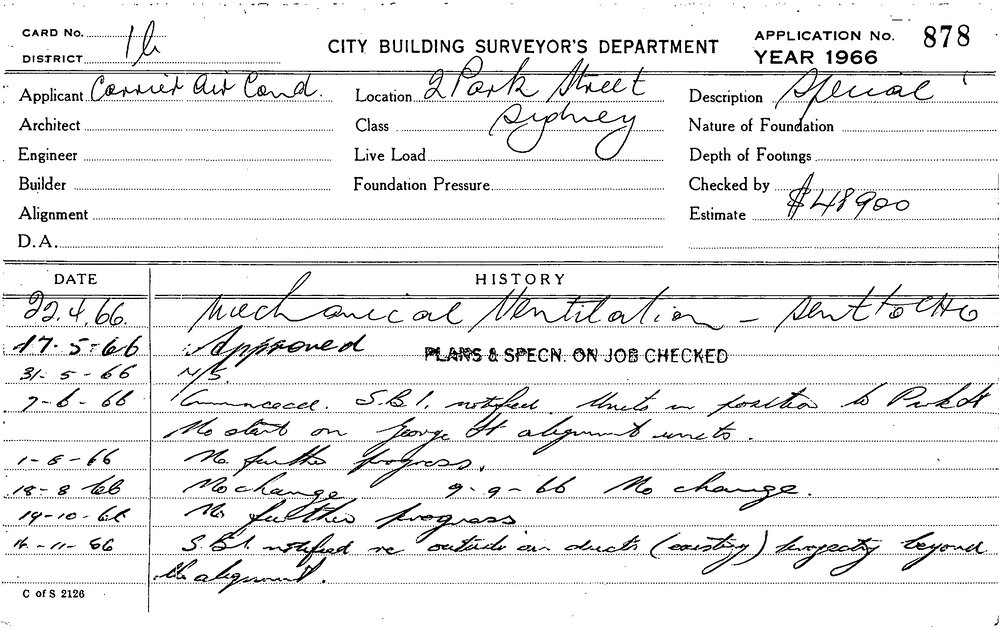 CARD No.
DISTRICT 1b
CITY BUILDING SURVEYOR'S DEPARTMENT
APPLICATION No. 878
YEAR 1966
Applicant Carrier Air Cond.
Location 2 Park Street
Sydney
Description Special
Architect
Class
Nature of Foundation
Engineer
Live Load
Depth of Footings
Builder
Foundation Pressure
Checked by
Alignment
Estimate $48900
D.A.
DATE HISTORY
22.4.66. Mechanical Ventilation – sent to CHO
17-5-66 Approved PLANS & SPECN. ON JOB CHECKED
31-5-66 N/S.
7-6-66 Commenced. S.B.I. notified. Units in position to Park St
No start on George St alignment units.
1-8-66 No further progress.
18-8-66 No change 9-9-66 No change.
19-10-66 No further progress
-11-66 S.B.I. notified re outside air ducts (existing) projecting beyond
the alignment.
C of S 2126